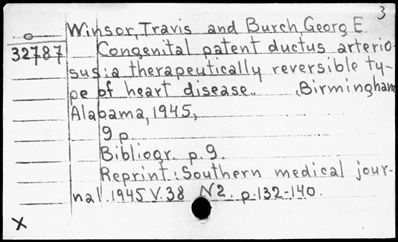 3
Winsor, Travis and Burch, Georg E
32787 Congenital patent ductus arterio-
sus: a therapeutically reversible ty-
pe of heart disease. Birmingham
Alabama, 1945,
9 p.
Bibliogr. p. 9.
Reprint: Southern medical jour-
nal. 1945 V. 38 N2. p. 132-140.
x